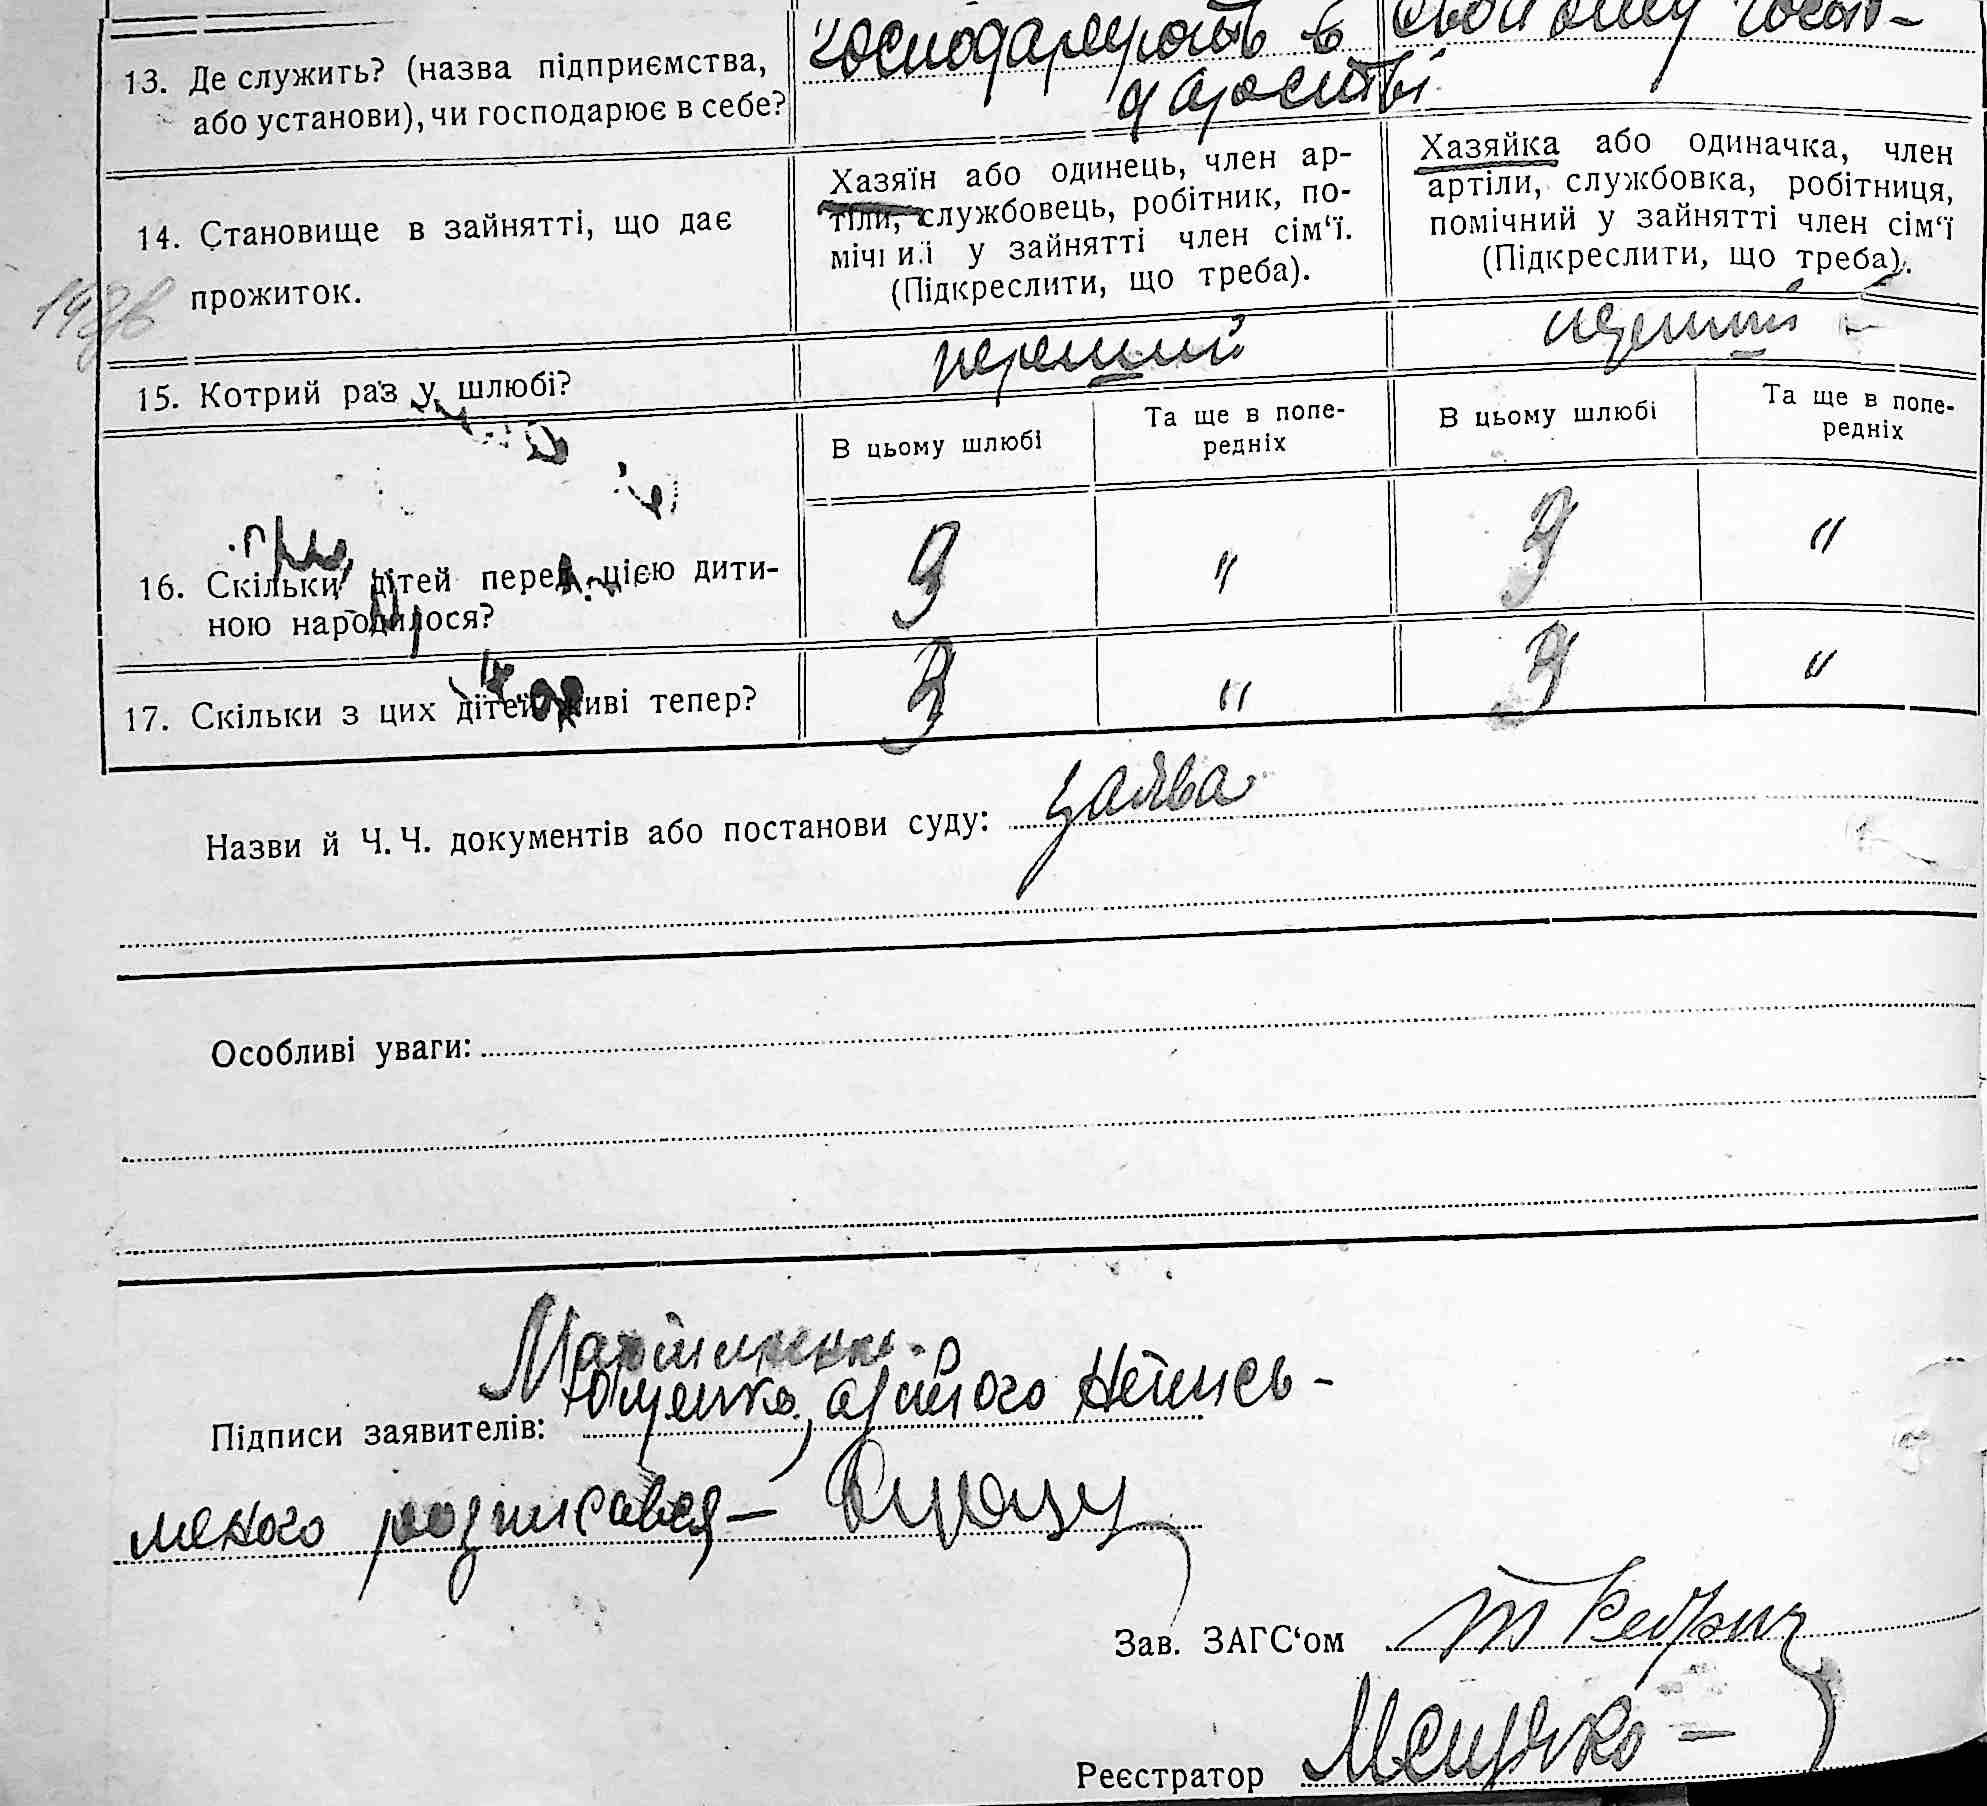 господарюють в своїому госп-
13. Де служить? (назва підприємства,
або установи), чи господарює в себе?
дарстві
14. Становище в зайнятті, що дає
прожиток.
Хазяїн або одинець, член ар-
тіли, службовець, робітник, по-
мічний у зайнятті член сім‘ї.
(Підкреслити, що треба).
Хазяйка або одиначка, член
артіли, службовка, робітниця,
помічний у зайнятті член сім‘ї
(Підкреслити, що треба).
15. Котрий раз у шлюбі?
перший
перший
В цьому шлюбі
Та ще в попе-
редніх
В цьому шлюбі
Та ще в попе-
редніх
16. Скільки дітей перед цією дити-
ною народилося?
3 " 3 "
17. Скільки з цих дітей живі тепер? 3 " 3 "
Назви й Ч. Ч. документів або постанови суду: заява
Особливі уваги:
Підписи заявителів: Ющенко, а за його неписьменного
розписався —
Зав. ЗАГС‘ом
Реєстратор